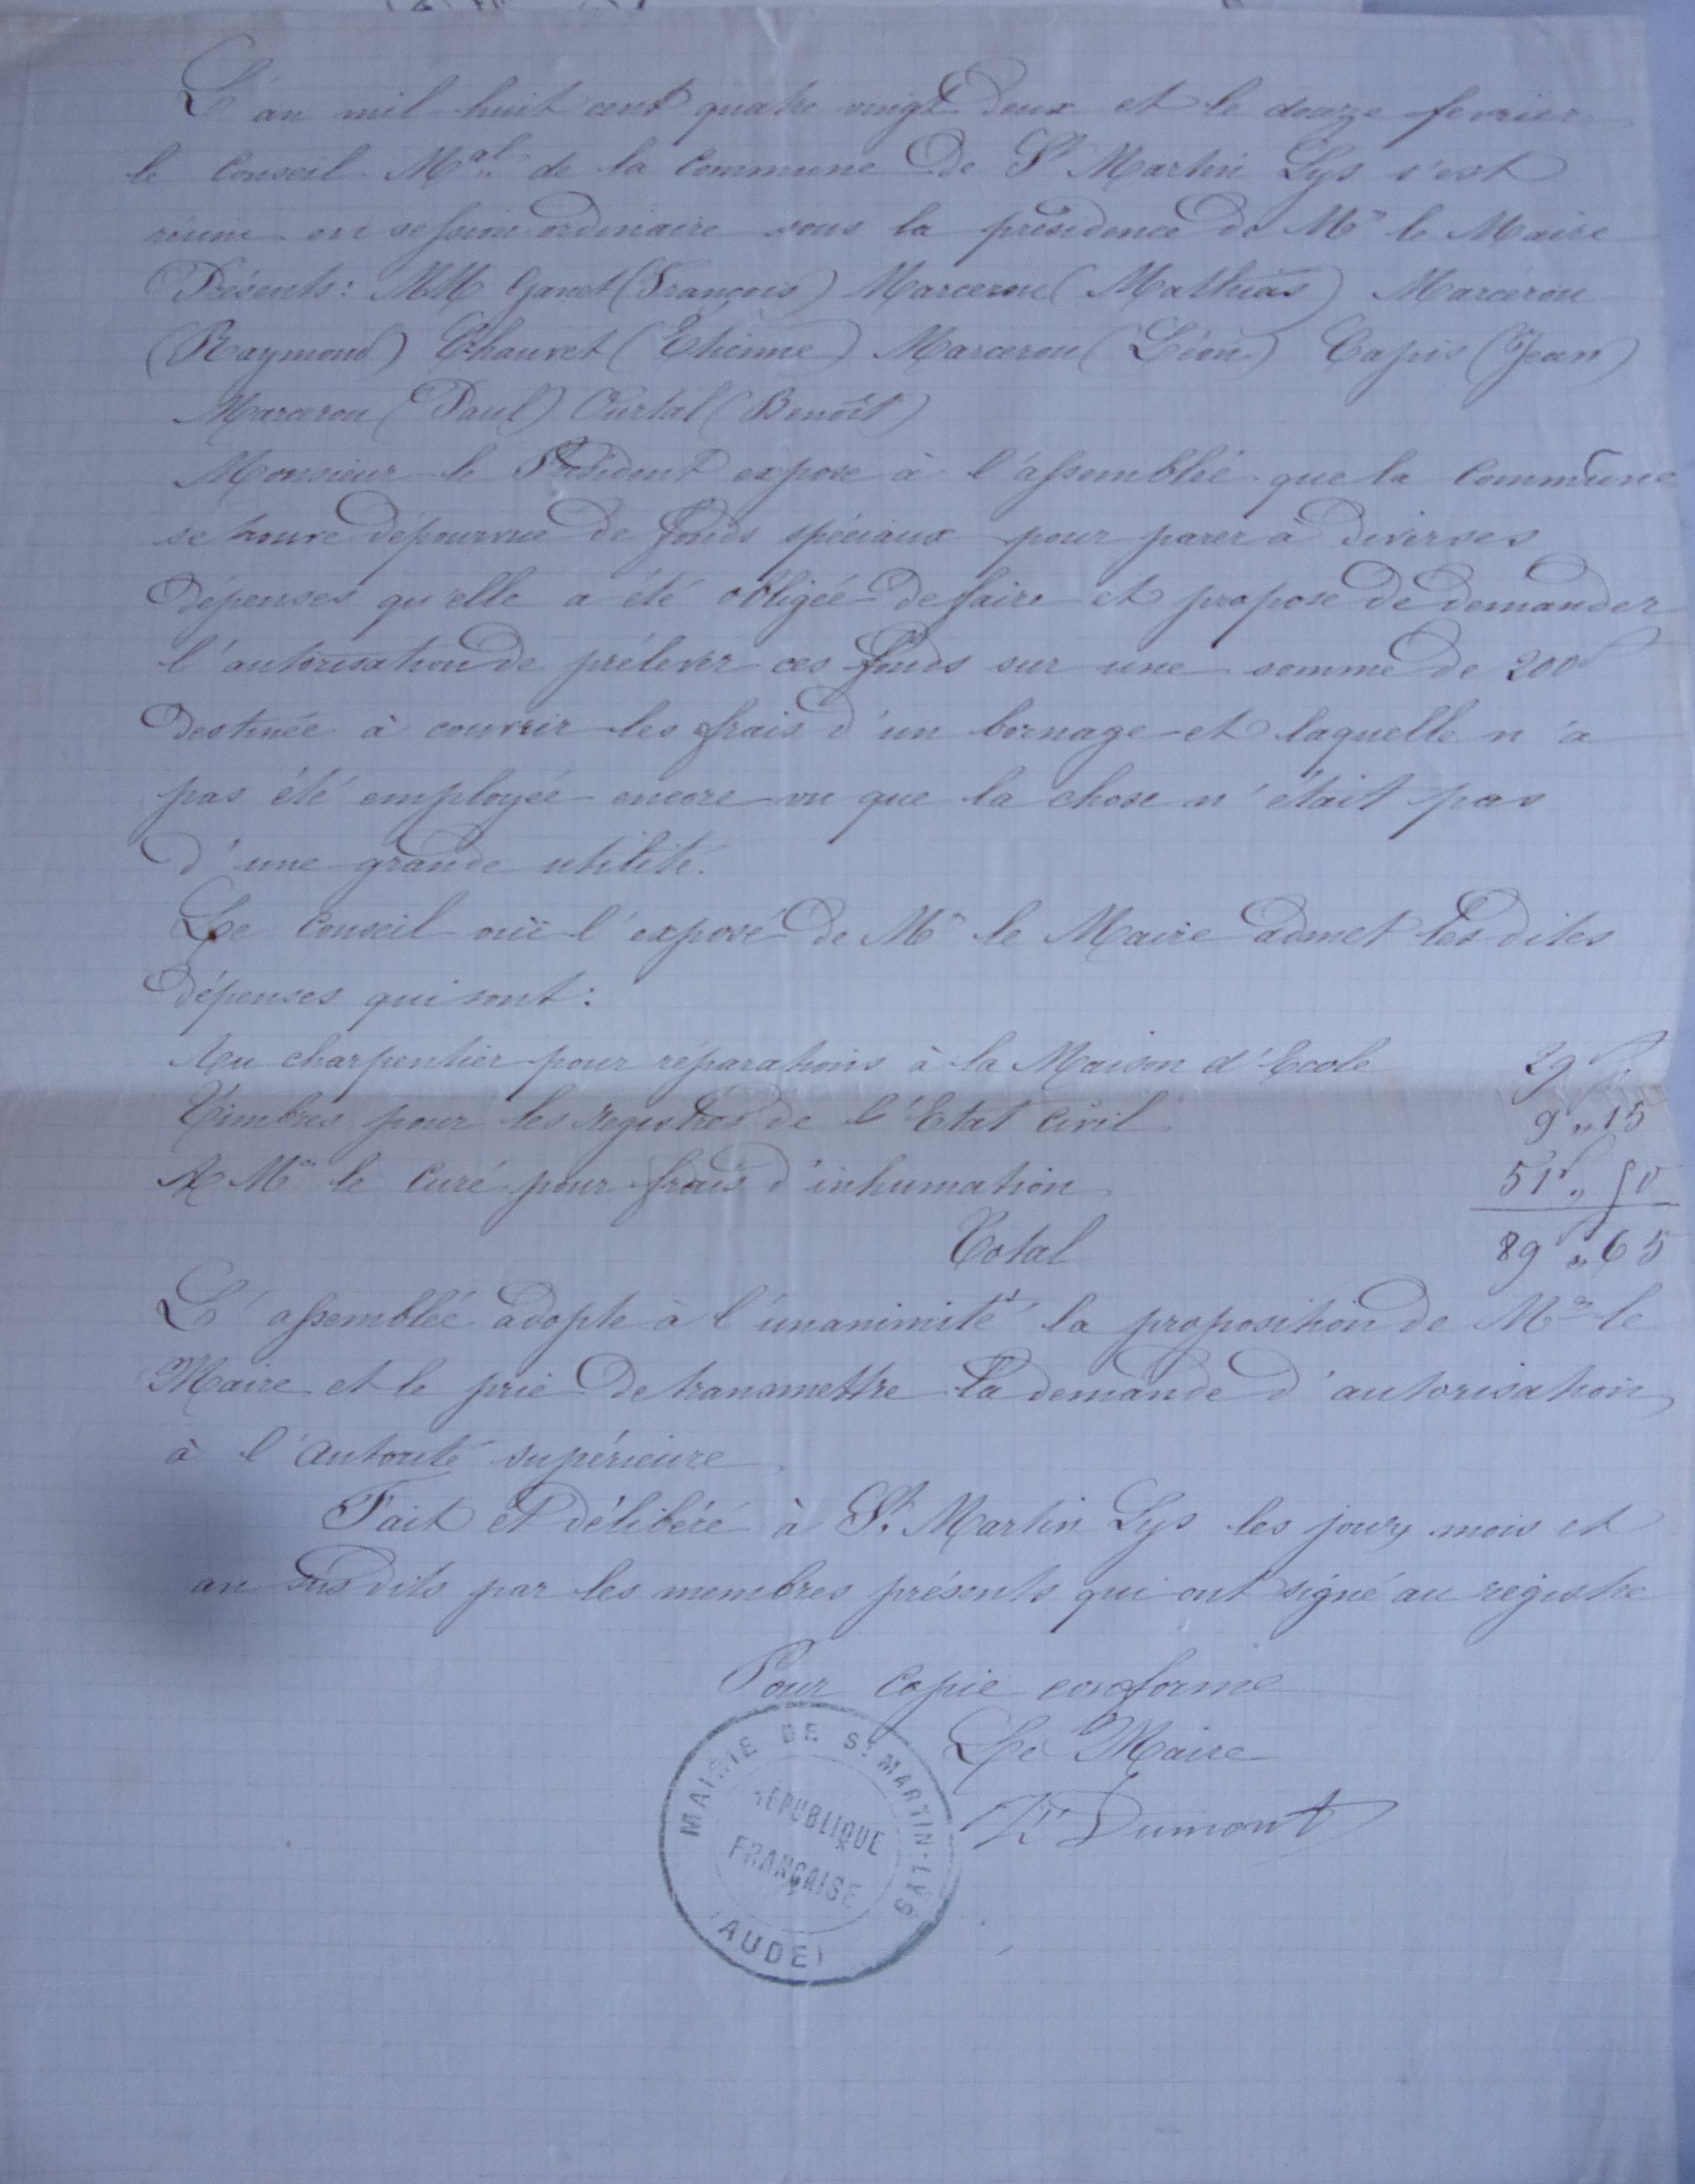 L'an mil huit cent quatre vingt deux et le douze fevrier
le Conseil Mal de la Commune de St Martin Lys s'est
réuni en session ordinaire sous la présidence de Mr le Maire
Présents: MM Ganet (François) Marcerou (Mathias) Marcerou
(Raymond) Chauvet (Etienne) Marcerou (Léon) Capis (Jean)
Marcerou (Paul) Curtal (Benoît)
Monsieur le Président expose à l'assemblée que la Commune
se trouve dépourvue de fonds spéciaux pour parer à diverses
dépenses qu'elle a été obligée de faire et propose de demander
l'autorisation de prélever ces fonds sur une somme de 200f
destinée à couvrir les frais d'un bornage et laquelle n'a
pas été employée encore vu que la chose n'était pas
d'une grande utilité.
Le Conseil ouï l'exposé de Mr le Maire admet les dites
dépenses qui sont:
Au charpentier pour réparations à la Maison d'Ecole 29f
Timbres pour les registres de l'Etat Civil 9f,,15
A Mr le Curé pour frais d'inhumation 51f,,50
Total 89f,,65
L'assemblée adopte à l'unanimité la proposition de Mr le
Maire et le prie de transmettre la demande d'autorisation
à l'autorité supérieure
Fait et délibéré à St. Martin Lys les jour, mois et
an sus dits par les membres présents qui ont signé au registre
Pour copie conforme
Le Maire
Dumont
MAIRIE DE ST MARTIN-LYS
REPUBLIQUE
FRANÇAISE
(AUDE)